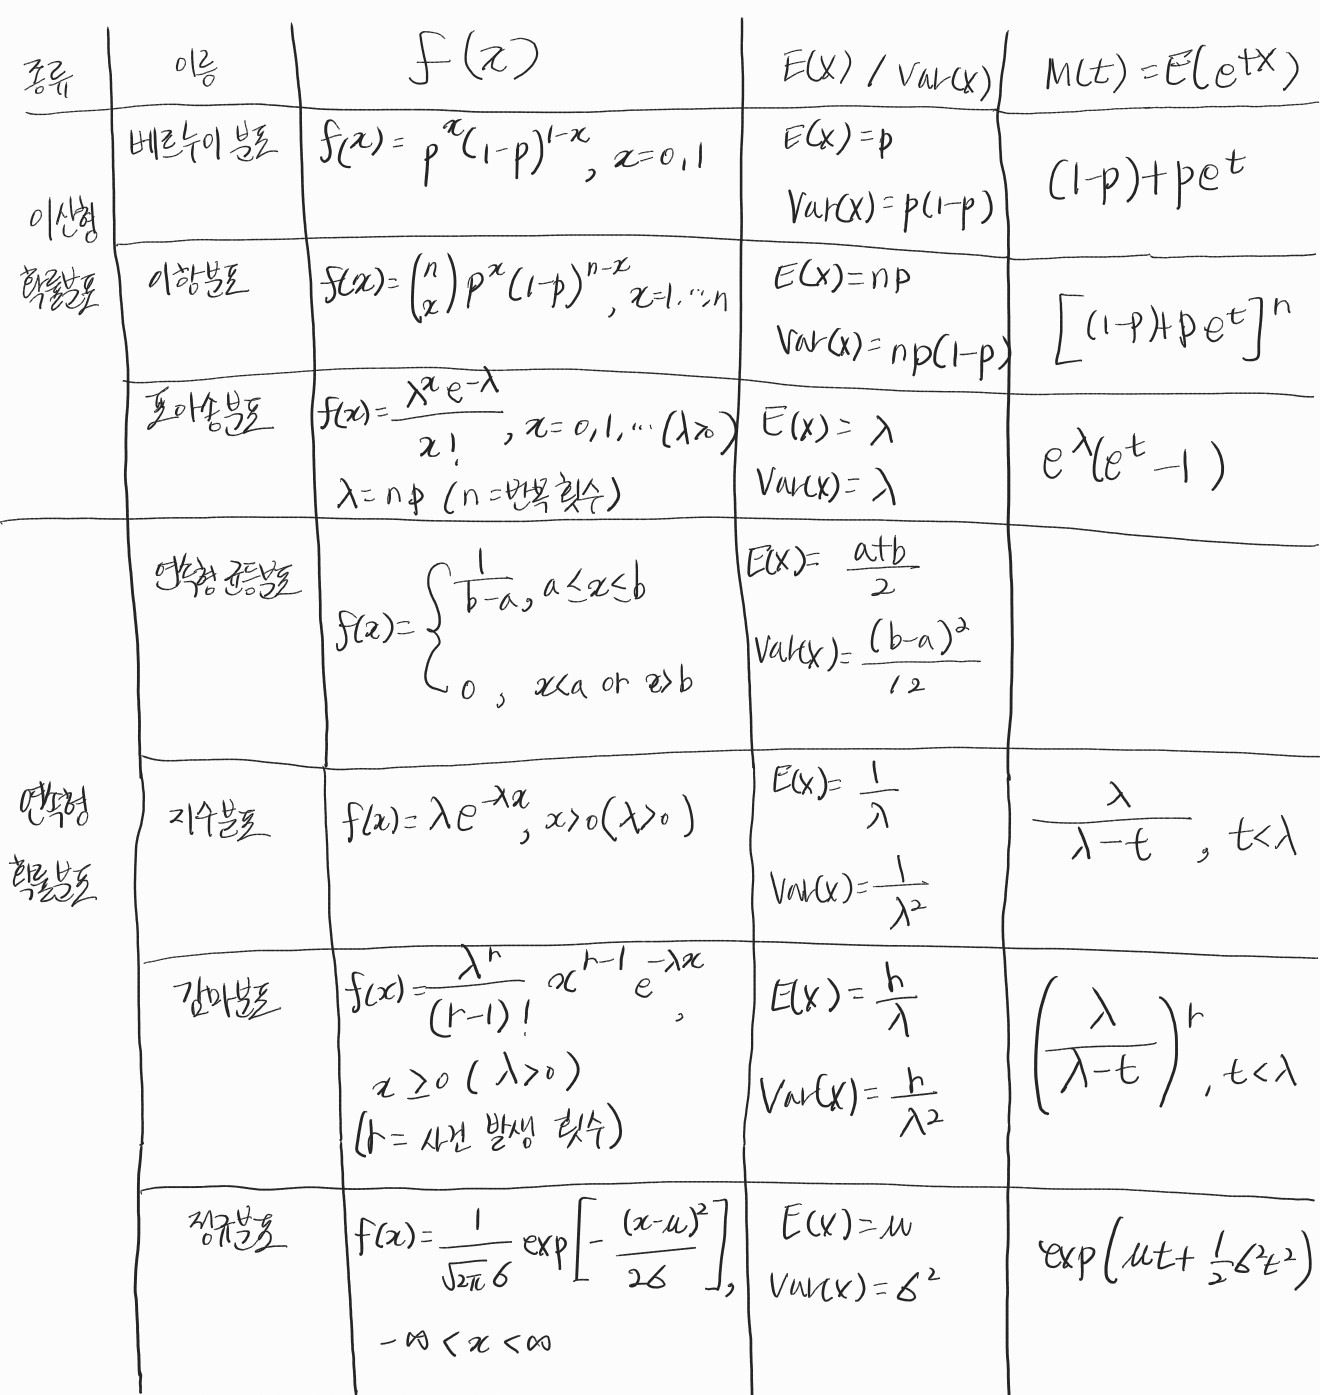 종류 이름 f(x) E(X) / Var(X) M(t) = E(e^{tX})
이산형
확률분포
베르누이 분포 f(x) = p^x(1-p)^{1-x}, x=0,1
E(X) = p
Var(X) = p(1-p)
(1-p)+pe^t
이항분포 f(x) = (n x) p^x (1-p)^{n-x}, x=1,…,n
E(X) = np
Var(X) = np(1-p)
[(1-p)+pe^t]^n
포아송분포 f(x) = λ^x e^{-λ} / x!, x=0,1,… (λ≥0)
λ = np (n=반복 횟수)
E(X) = λ
Var(X) = λ
e^λ(e^t -1)
연속형
확률분포
연속형 균등분포 f(x) = { 1/(b-a), a≤x≤b
0, x<a or x>b
E(X) = (a+b)/2
Var(X) = (b-a)^2/12
지수분포 f(x) = λe^{-λx}, x>0 (λ>0)
E(X) = 1/λ
Var(X) = 1/λ^2
λ/(λ-t), t<λ
감마분포 f(x) = λ^r/(r-1)! x^{r-1} e^{-λx},
x ≥0 ( λ>0 )
(r = 사건 발생 횟수)
E(X) = r/λ
Var(X) = r/λ^2
(λ/(λ-t))^r, t<λ
정규분포 f(x) = 1/(√2π σ) exp[- (x-μ)^2/2σ],
-∞ < x < ∞
E(X) = μ
Var(X) = σ^2
exp(μt+ 1/2 σ^2t^2)